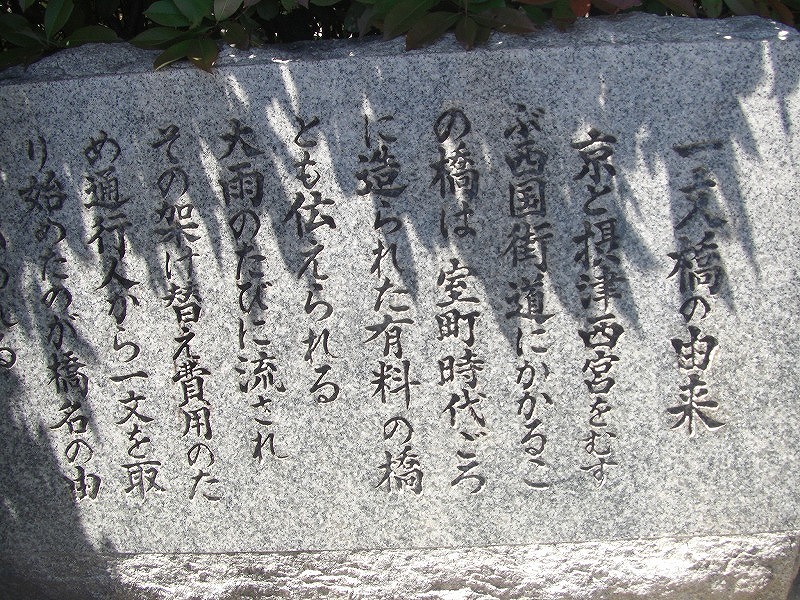 一文橋の由来
京と摂津西宮をむす
ぶ西国街道にかかるこ
の橋は 室町時代ごろ
に造られた有料の橋
とも伝えられる
大雨のたびに流され
その架け替え費用のた
め通行人から一文を取
り始めたのが橋名の由
われる